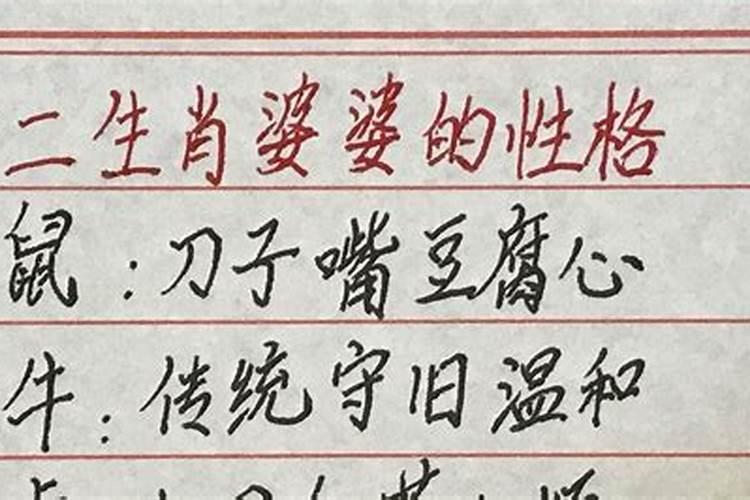 二生肖婆婆的性格
鼠：刀子嘴豆腐心
牛：传统守旧温和